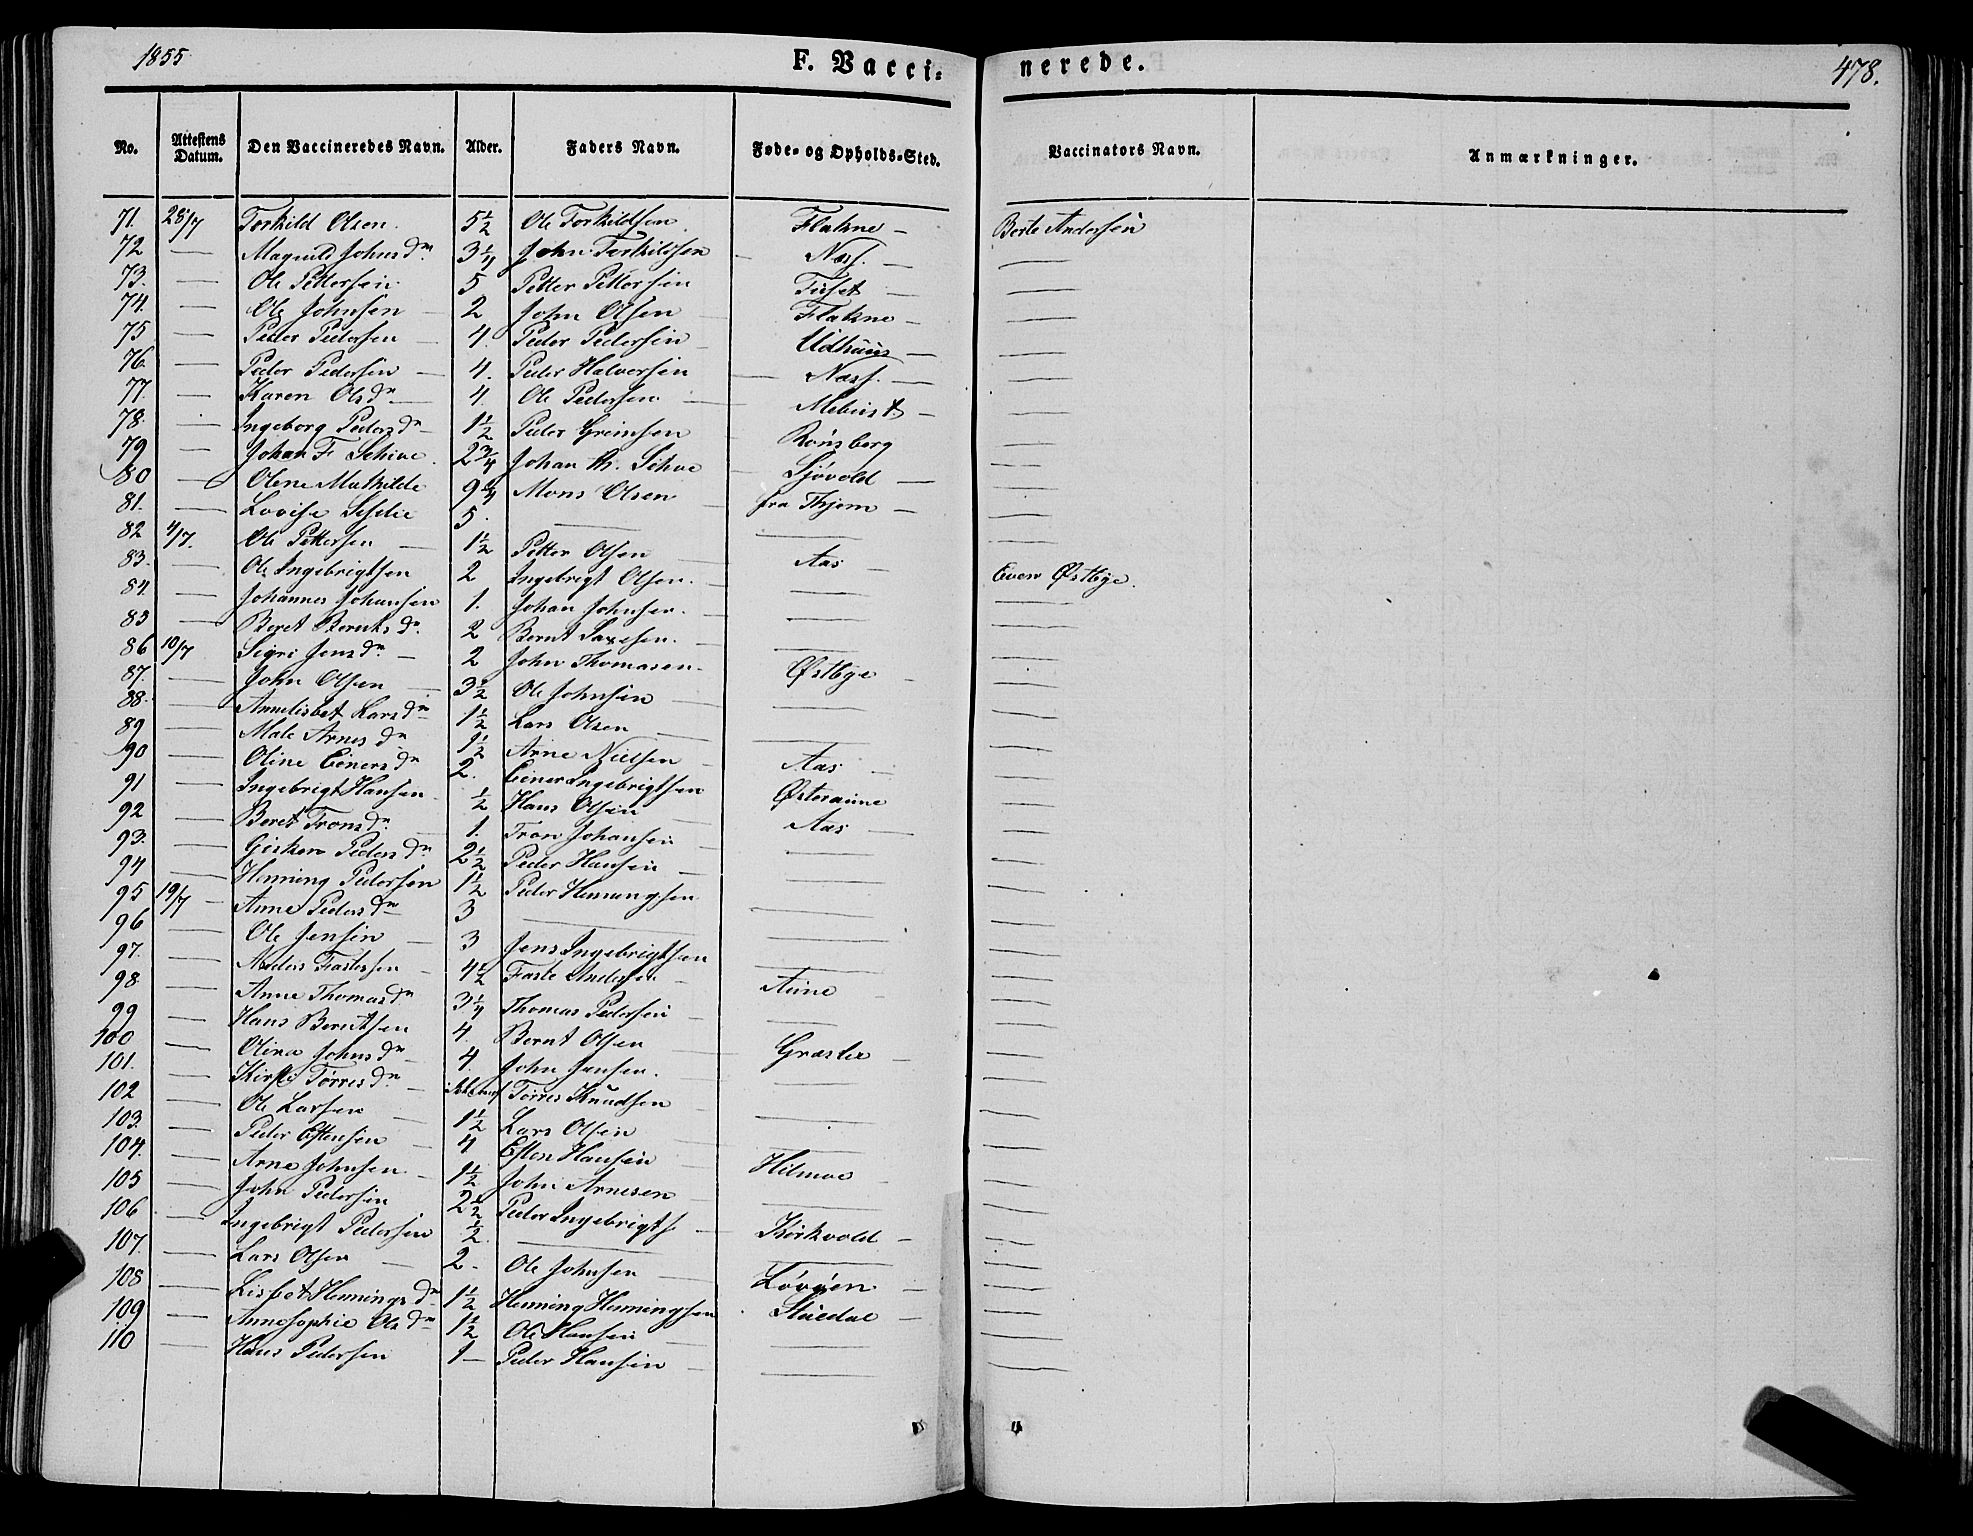 1855
F. Vacci- nerede.
478.
No. Attestens Datum. Den Vaccineredes Navn. Alder. Faders Navn. Føde- og Opholds-Sted. Vaccinators Navn. Anmærkninger.
71. 28/7 Torkild Olsen. 5½ Ole Torkildsen Flakne — Berte Andersen
72 — Magnild Johnsdr. 3¼ John Torkildsen — Næss. — —
73. — Ole Pettersen 5 Petter Pettersen Tuset — —
74. — Ole Johnsen — 2 John Olsen — Flakne — —
75 — Peder Pedersen — 4. Peder Pedersen — Udhuus — —
76. — Peder Pedersen — 4. Peder Halvorsen — Næss. — —
77. — Karen Olsdr — 4. Ole Pedersen — Mebust — —
78. — Ingeborg Pedersdr — 1½ Peder Greimsen — Rønsberg —
79 — Johan F. Schive. 2¾ Johan Th. Schve — Sjøvold — —
80 — Olene Mathilde 9¼ Mons Olsen — fra Thjem — —
81. — Lovise 5. — — —
82 4/7. Ole Pettersen — 1½ Petter Olsen — Aas — —
83. — Ole Ingebrigtsen 2 Ingebrigt Olsen. — — Even Østbye.
84 — Johannes Johansen 1. Johan Johnsen. — — —
85 — Beret Berntsdr. 2 Bernt Saxesen. — — —
86 10/7 Sigri Jensdr — 2 John Thomasen. Østbye — —
87. — John Olsen — 3½ Ole Johnsen — — —
88. — Annelisbet Larsdr 1½ Lars Olsen — — —
89 — Male Arnesdr 1½ Arne Nielsen — Aas — —
90 — Oline Einersdr 2. Einer Ingebrigtsen Østeraune —
91 — Ingebrigt Hansen ½ Hans Olsen — Aas — —
92 — Beret Tronsdr. — 1. Tron Johansen — — —
93. — Gjerken Pedersdr. 2½ Peder Hansen — — —
94 — Henning Pedersen 1½ Peder Henningsen — —
95 19/7 — Anne Pedersdr 3 — — —
96 — Ole Jensen — 3 Jens Ingebrigtsen — —
97. — Anders Fastesen — 4½ Faste Andersen — Aune — —
98 — Anne Thomasdr 3¼ Thomas Pedersen — — —
99 — Hans Berntsen 4. Bernt Olsen — Græsle — —
100 — Olina Johnsdr — 4. John Jensen. — —
101. — Kirsti Tørresdr — Tørres Knudsen — — —
102 — Ole Larsen — 1½ Lars Olsen — — —
103. — Peder Estensen — 4 Esten Hansen Hilmoe — —
104. — Arne Johnsen. — 1½ John Arnesen — — —
105 — John Pedersen 2½ Peder Ingebrigts — Kirkvold — —
106 — Ingebrigt Pedersen ½ — —
107. — Lars Olsen — 2 — Ole Johnsen — Løvøen — —
108 — Lisbet Henningsdr 1½ Henning Henningsen Stuedal — —
109 — Anne Sophie Olsdr 1½ Ole Hansen — —
110 — Hans Pedersen 1 — Peder Hansen — — —